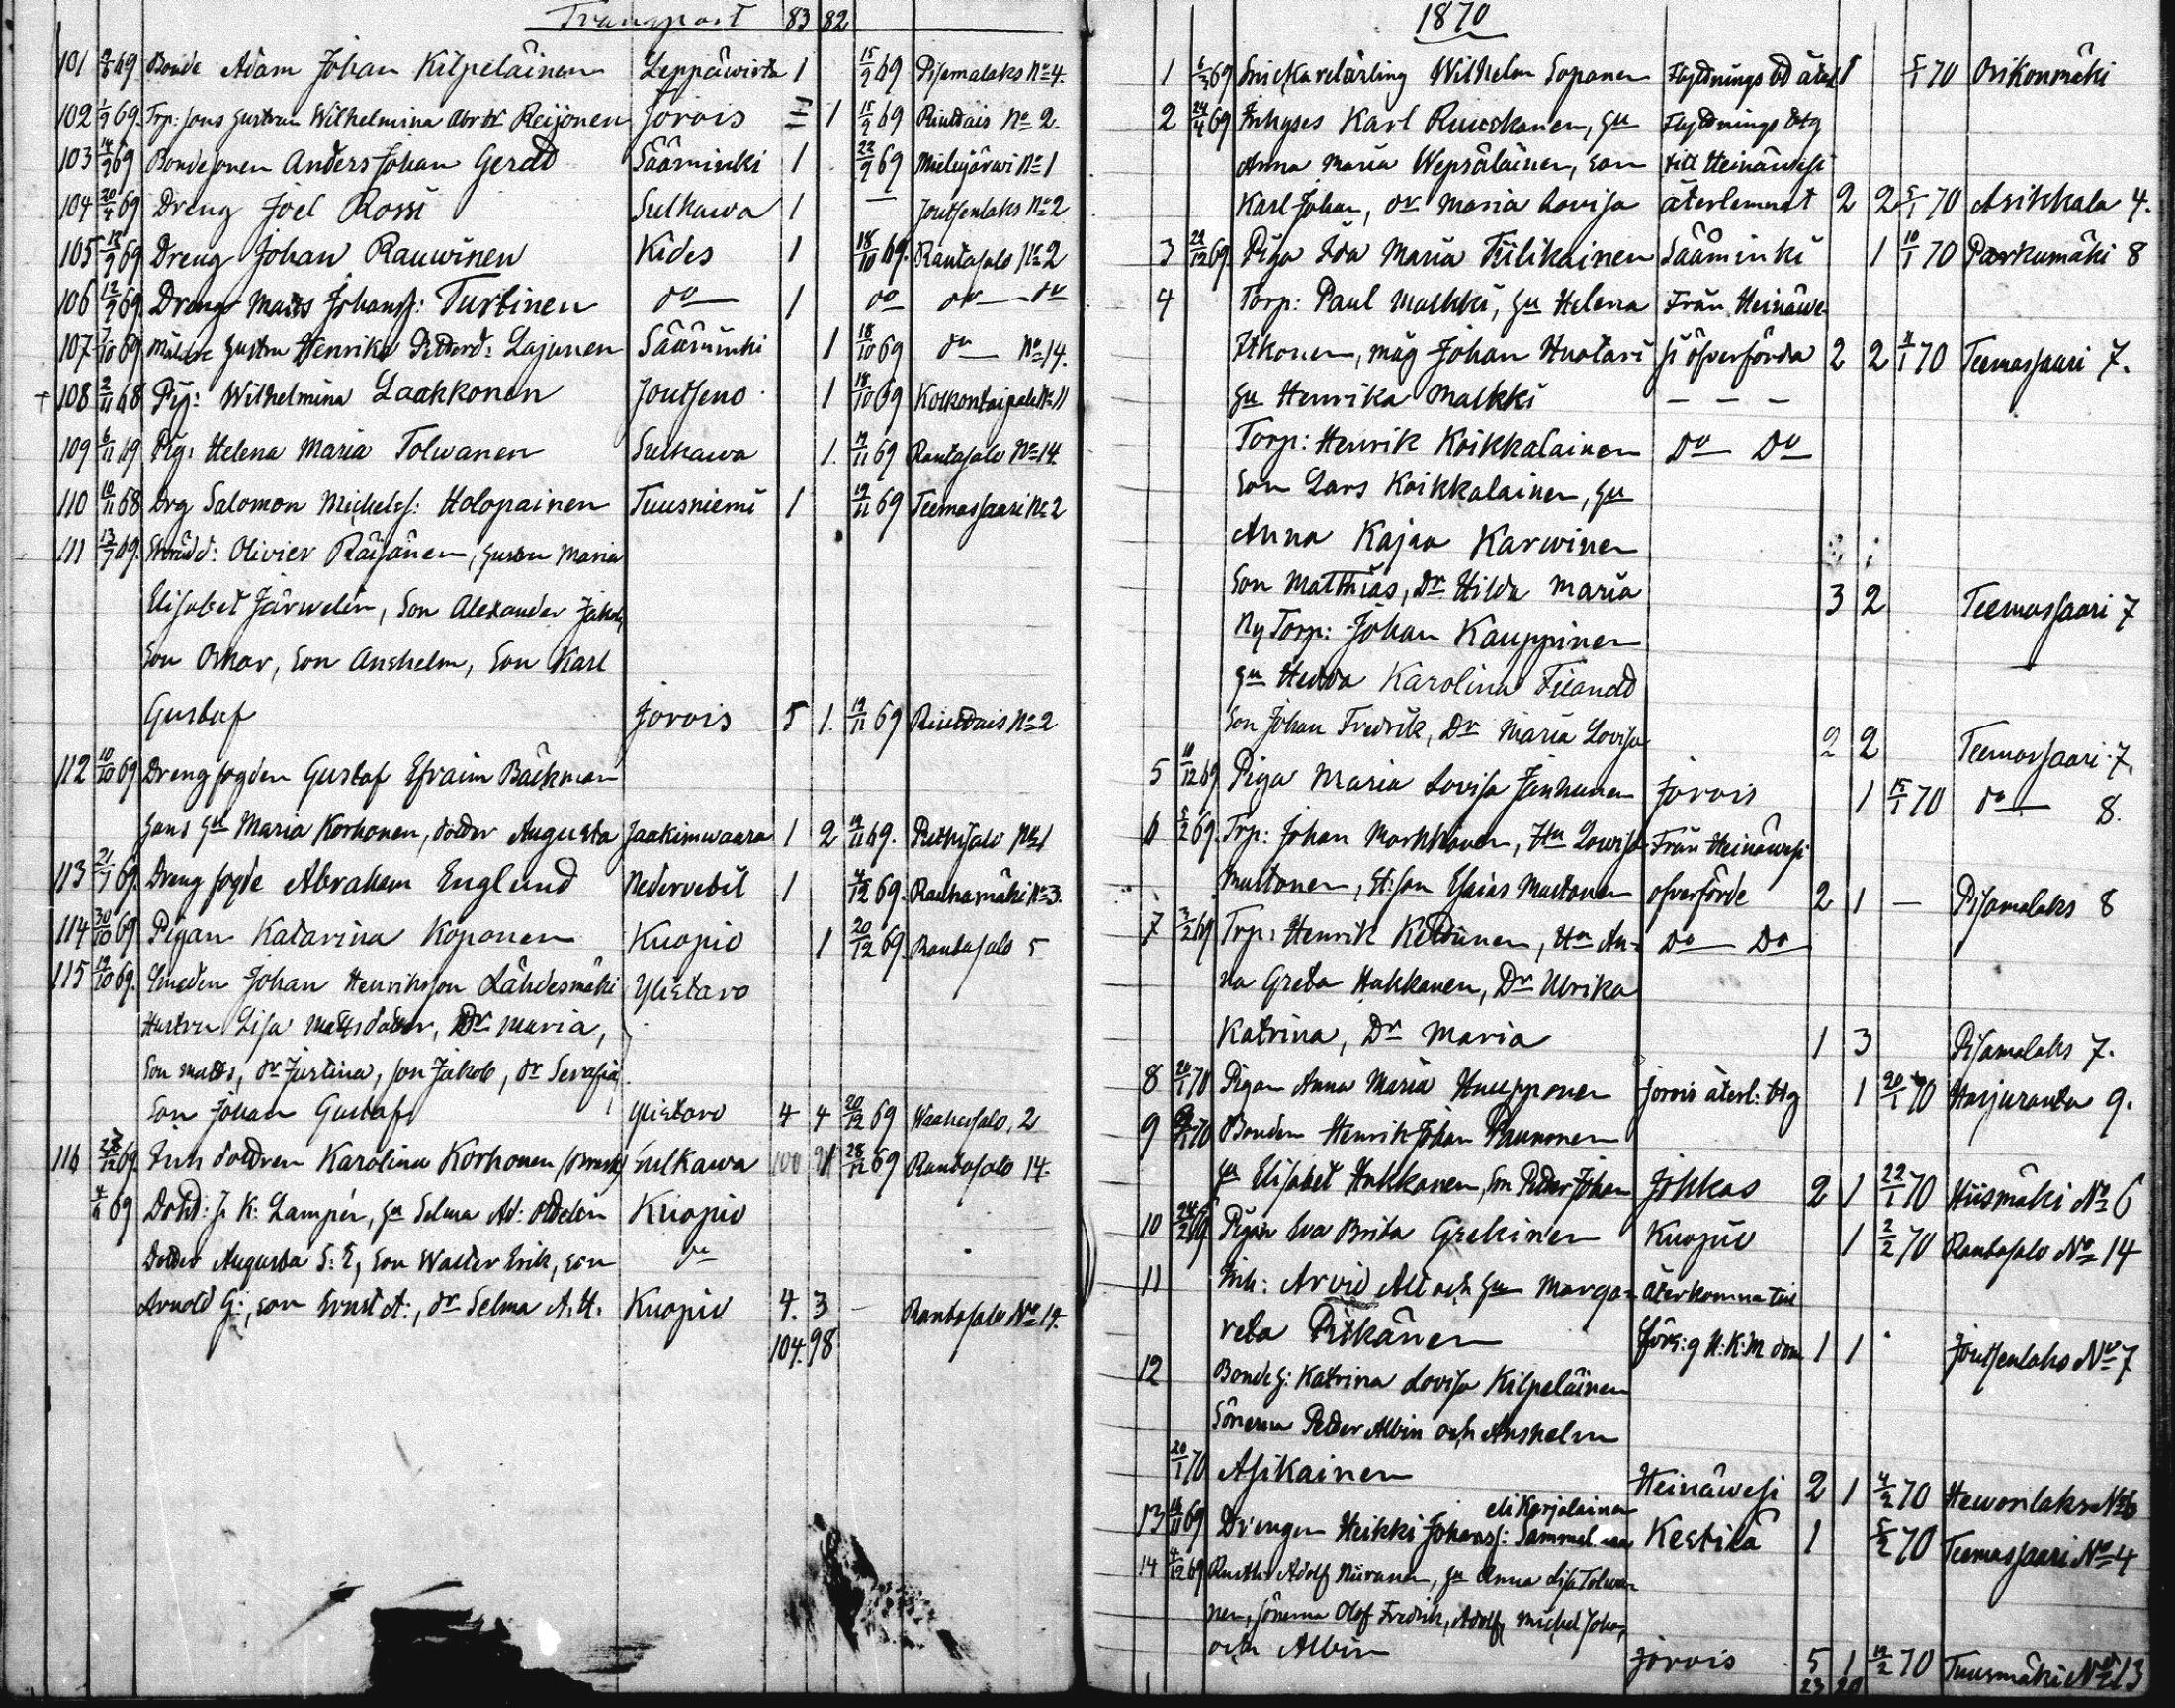 Transport 83 82
101 69 Bonde Adam Johan Kilpeläinen Leppäwirta 1 15/9 69 Pisamalaks No 4.
102 1/9 69. Wilhelmina Reijonen Jorois 1 15/9 69 No 2.
103 14/9 69 Bondesonen Anders Johan Gerdt Sääminki 1 22/9 69 No 1
104 20/4 69 Dreng Joel Rossi Sulkawa 1 — Joutsenlaks No 2
105 69 Dreng Johan Rauwinen Kides 1 18/10 69. Rantasalo No 2
106 12/9 69. Dreng Matts Johanss: Turtinen do — 1 do do — do
107 7/10 69 Henrika Lajunen Sääminki 1 18/10 69 do — No 14.
+ 108 2/11 68 Pig: Wilhelmina Laakkonen Joutseno 1 18/10 69 No 11
109 6/11 69 Pig: Helena Maria Tolwanen Sulkawa 1. 19/11 69 Rantasalo No 14.
110 10/11 68 Drg Salomon Michelss: Holopainen Tuusniemi 1 19/11 69 Teemassaari No 2
111 13/7 69. Olivier Räisänen, hustru Maria
Elisabet Järwelin, Son Alexander Jakob,
Son Oskar, Son Anshelm, Son Karl
Gustaf Jorois 5 1. 19/11 69 No 2
112 10/10 69 Drengfogden Gustaf Efraim Bäckman
hans hu Maria Korhonen, dotter Augusta Jaakimwaara 1 2 19/11 69. No 1
113 21/1 69. Dreng fogde Abraham Englund Nedervetil 1 4/12 69. Rauhamäki No 3.
114 30/10 69 Pigan Katarina Koponen Kuopio 1 20/12 69. Rantasalo 5
115 19/10 69. Smeden Johan Henriksson Lähdesmäki Ylistaro
Hustru Lisa Mattsdotter, Dr Maria,
Son Matts, dr Justina, son Jakob, dr Serafia,
Son Johan Gustaf Ylistaro 4 4 20/12 69 2
116 69. Inh dottren Karolina Korhonen Sulkawa 100 91 28/12 69 Rantasalo 14.
69 J. K: Lampén, hu Selma Ad: Kuopio
Dotter Augusta S: E, son Walter Erik, son do
Arnold G:, son Ernst A:, dr Selma A. H. Kuopio 4. 3 — Rantasalo No 14.
104. 98
1870
1 69 Wilhelm Sopanen Flyttnings 1 5/1 70 Osikonmäki
2 24/4 69 Inhyses Karl Ruuskanen, hu Flyttnings btg
Anna Maria Wepsäläinen, son till Heinäwesi
Karl Johan, dr Maria Lovisa återlemnat 2 2 5/1 70 Asikkala 4.
3 29/12 69. Piga Ida Maria Tiilikainen Sääminki 1 10/1 70 Parkumäki 8
4 Torp: Paul Malkki, hu Helena Från Heinäwe-
Itkonen, måg Johan Huotari si öfverförda 2 2 70 Teemassaari 7.
hu Henrika Malkki — — —
Torp: Henrik Koikkalainen Do — Do
Son Lars Koikkalainen, hu
Anna Kajsa Karwinen
Son Matthias, Dr Hilda Maria 3 2 Teemassaari 7
Ny Torp: Johan Kauppinen
hu Hedda Karolina
Son Johan Fredrik, Dr Maria Lovisa 2 2 Teemassaari 7.
5 10/12 69. Piga Maria Lovisa Janhunen Jorois 1 15/1 70 do — 8.
6 5/2 69. Trp: Johan Markkanen, Hu Lovisa Från Heinäwesi
Mustonen, St:son Esaias Mustonen öfverförde 2 1 — Pisamalaks 8
7 3/2 69 Trp: Henrik Kettunen, An- Do — Do
na Greta Hakkanen, Dr Ulrika
Katrina, Dr Maria 1 3 Pisamalaks 7.
8 20/1 70 Pigan Anna Maria Huupponen Jorois återl: btg 1 20/1 70 Harjuranta 9.
9 70 Bonden Henrik Johan
hu Elisabet Hakkanen, Son Petter Johan Jokkas 2 1 22/1 70 Hiismäki No 6
10 69 Pigan Eva Brita Kuopio 1 2/2 70 Rantasalo No 14
11 Inh: Arvid Alt och hu Marga- återkomna till
reta Pitkänen 1 1 Joutsenlaks No 7
12 Katrina Lovisa Kilpeläinen
Sönerna Petter Albin och Anshelm
20/1 70 Asikainen Heinäwesi 2 1 4/2 70 Hewonlaks No 6
eli Karjalainen
13 16/11 69 Drengen Heikki Johanss: Kestilä 1 5/2 70 Teemassaari No 4
14 4/12 69 Adolf Niiranen, hu Anna Lisa Tolwa-
nen, sönerna Olof Fredrik, Adolf, Michel Joh:,
och Albin Jorois 5 1 19/2 70 Tuusmäki No 13
23 20